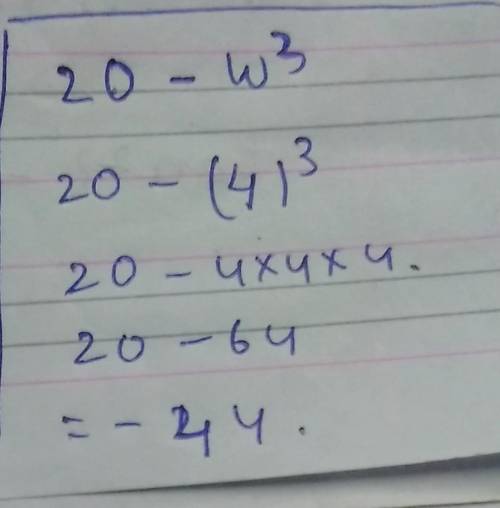 20 - w³
20 - (4)³
20 - 4×4×4.
20 - 64
= - 44.